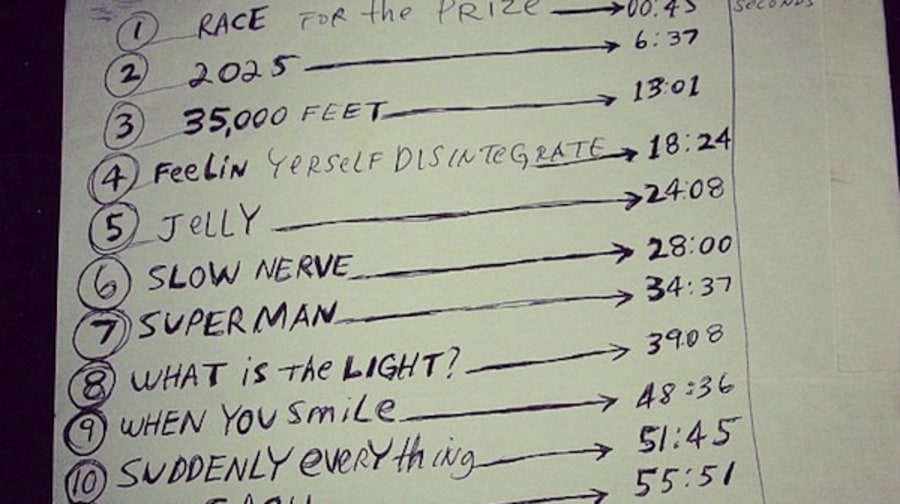 1 RACE FOR the PRIZE → 00:45 SECONDS
2 2025 → 6:37
3 35,000 FEET → 13:01
4 FEELIN YERSELF DISINTEGRATE → 18:24
5 JELLY → 24:08
6 SLOW NERVE → 28:00
7 SUPERMAN → 34:37
8 WHAT iS The LIGHT? → 39:08
9 WHEN YOU SmiLe → 48:36
10 SUDDENLY eveRYthing → 51:45
→ 55:51